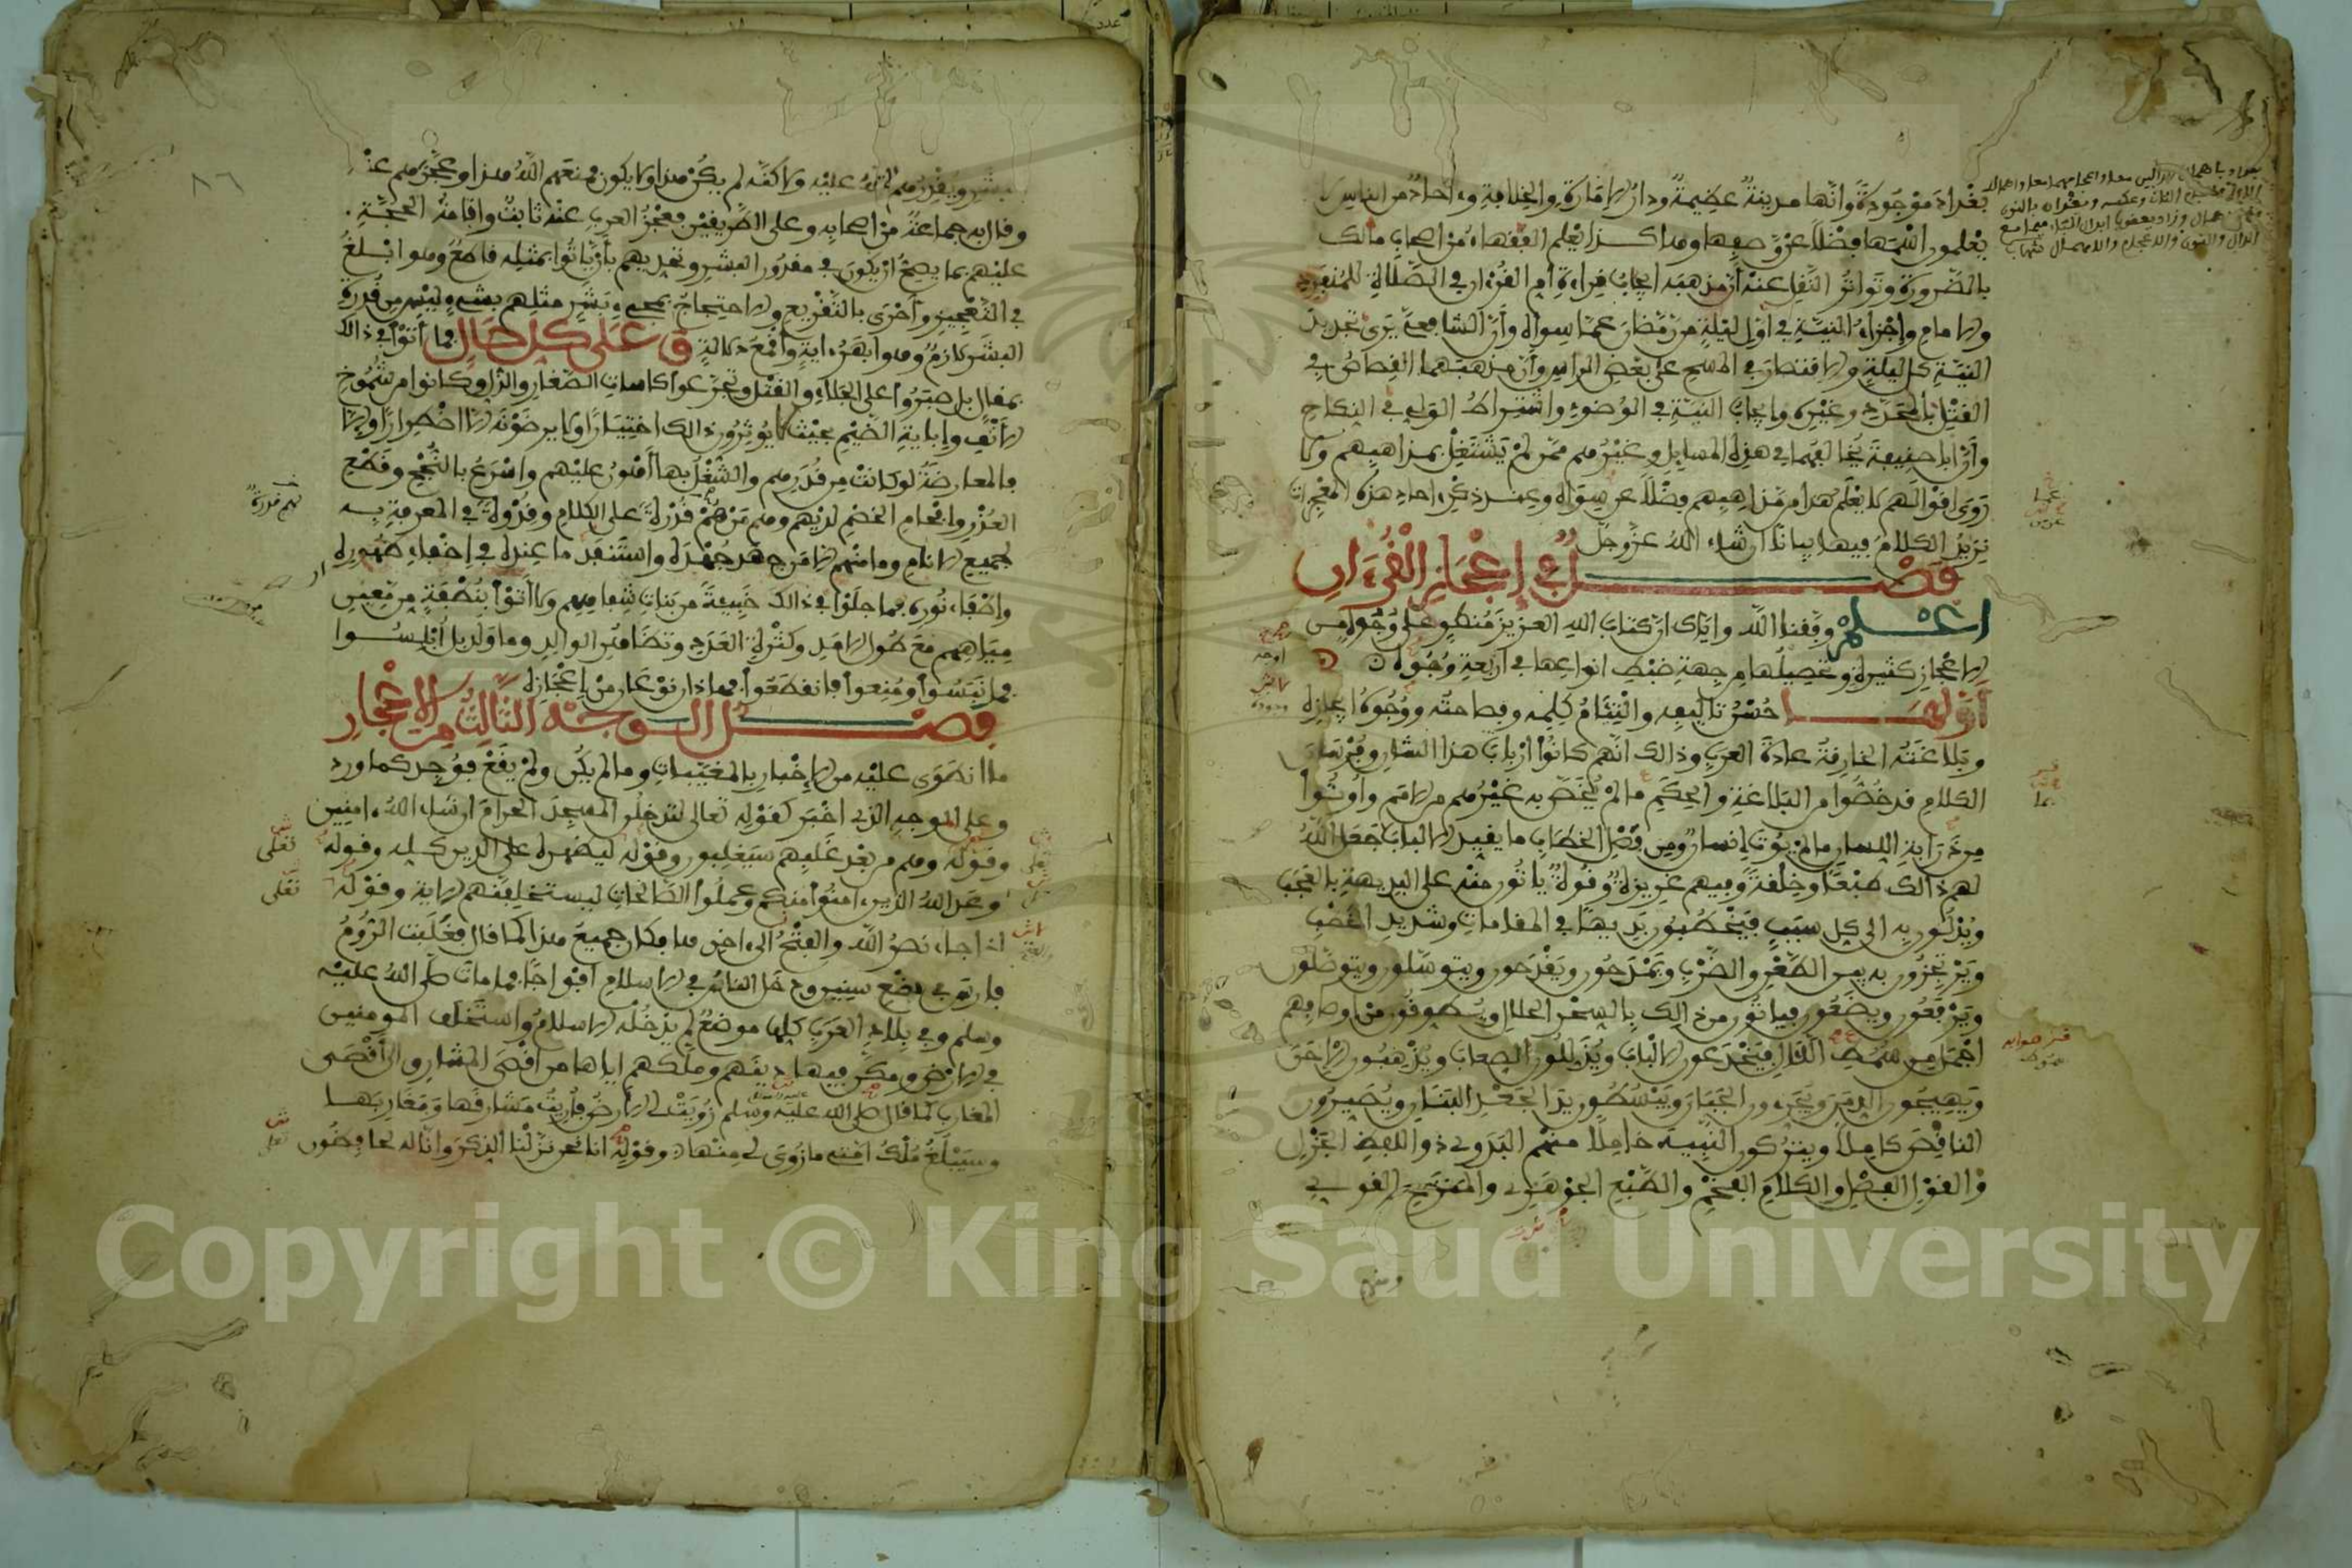 بغداد موجودة وانها مدينة عظيمة ودار الامارة والخلافة وءاحاد من الناس لا
يعلمون اسمها فضلا عن وصفها وهاكذا يعلم الفقهاء من اصحاب مالك
بالضرورة وتواتر النقل عنه أن مذهبه ايجاب قراءة ام القرءان في الصلاة للمنفرد
والامام وإجزاء النية في اول ليلة من رمضان عما سواه وأن الشافعي يرى تجديد
النية كل ليلة والاقتصار في المسح على بعض الراس وأن مذهبهما القصاص في
القتل بالمحدد وغيره وايجاب النية في الوضوء واشتراط الولي في النكاح
وأن ابا حنيفة يخالفهما في هذه المسايل وغيرهم ممن لم يشتغل بمذاهبهم ولا
روى اقوالهم لا يعلم هذا من مذاهبهم فضلا عن سواه وعند ذكر ءاحاد هذه المعجزات
نزيد الكلام فيها بيانا ان شاء الله عز وجل
فصل في إعجاز القرءان
اعلم وفقنا الله واياك ان كتاب الله العزيز منطو على وجوه من
الاعجاز كثيرة وتحصيلها من جهة ضبط انواعها في أربعة وجوه
أولها حسن تاليفه والتئام كلمه وفصاحته ووجوه ايجازه
وبلاغته الخارقة عادة العرب وذلك انهم كانوا ارباب هذا الشان وفرسان
الكلام قد خصوا من البلاغة والحكم ما لم يخص به غيرهم من الامم واوتوا
من ذرابة اللسان ما لم يوت إنسان ومن فصل الخطاب ما يقيد الالباب جعل الله
لهم ذلك طبعا وخلقة وفيهم غريزة وقوة ياتون منه على البديهة بالعجب
ويدلون به الى كل سبب فيخطبون بديها في المقامات وشديد الخطب
ويرتجزون به بين الطعن والضرب ويمدحون ويقدحون ويتوسلون ويتوصلون
ويرفعون ويضعون فياتون من ذلك بالسحر الحلال ويطوقون من اوصافهم
اجمل من سمط اللآل فيخدعون الالباب ويذللون الصعاب ويذهبون الاحن
ويهيجون الدمن ويجرءون الجبان ويبسطون يد الجعد البنان ويصيرون
الناقص كاملا ويتركون النبيه خاملا منهم البدوي ذو اللفظ الجزل
والقول الفصل والكلام الفخم والطبع الجوهري والمنزع القوي
٨٦
عليهم بما يصح ان يكون في مقدور البشر وتحديهم بأن ياتوا بمثله قاطع وهو ابلغ
في التعجيز وأحرى بالتقريع والاحتجاج بمجيء بشر مثلهم بشيء ليس من قدرة
البشر لازم وهو ابهر ءاية واقمع دلالة وعلى كل حال فما أتوا في ذلك
بمقال بل صبروا على الجلاء والقتل وتجرعوا كاسات الصغار والذل وكانوا من شموخ
الانف وإباية الضيم بحيث لا يوثرون ذلك اختيارا ولا يرضونه الا اضطرارا والا
فالمعارضة لو كانت من قدرهم والشغل بها اهون عليهم واسرع بالنجح وقطع
العذر وافحام الخصم لديهم وهم من هم قدرة على الكلام وقدوة في المعرفة به
لجميع الانام وما منهم الا من جهد جهده واستنفد ما عنده في إخفاء ظهوره
وإطفاء نوره فما جلوا في ذلك خبيئة من بنات شفاههم ولا أتوا بنطفة من معين
مياههم مع طول الامد وكثرة العدد وتظاهر الوالد وما ولد بل أبلسوا
فما نبسوا ومنعوا فانقطعوا فهذان نوعان من إعجازه
فصل الوجه الثالث من الاعجاز
ما انطوى عليه من الإخبار بالمغيبات وما لم يكن ولم يقع فوجد كما ورد
وعلى الوجه الذي اخبر كقوله تعالى لتدخلن المسجد الحرام ان شاء الله ءامنين
وقوله وهم من بعد غلبهم سيغلبون وقوله ليظهره على الدين كله وقوله
وعد الله الذين ءامنوا منكم وعملوا الصالحات ليستخلفنهم الاية وقوله
اذا جاء نصر الله والفتح الى ءاخرها فكان جميع هذا كما قال فغلبت الروم
فارس في بضع سنين ودخل الناس في الاسلام افواجا فما مات صلى الله عليه
وسلم وفي بلاد العرب كلها موضع لم يدخله الاسلام واستخلف المومنين
في الارض ومكن فيها دينهم وملكهم اياها من اقصى المشارق الى أقصى
المغارب كما قال صلى الله عليه وسلم زويت لي الارض فأريت مشارقها ومغاربها
وسيبلغ ملك امتي ما زوي لي منها وقوله انا نحن نزلنا الذكر وانا له لحافظون
Copyright © King Saud University